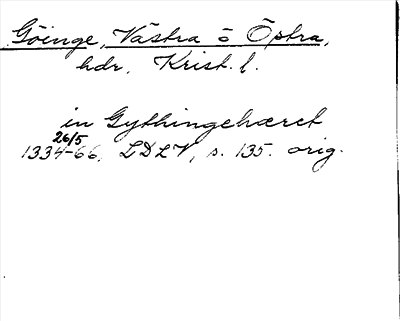 Göinge, Västra o Östra,
hdr, Krist. l.
in Gythingehæret
26/5
1334-66, LDLV, s. 135. orig.